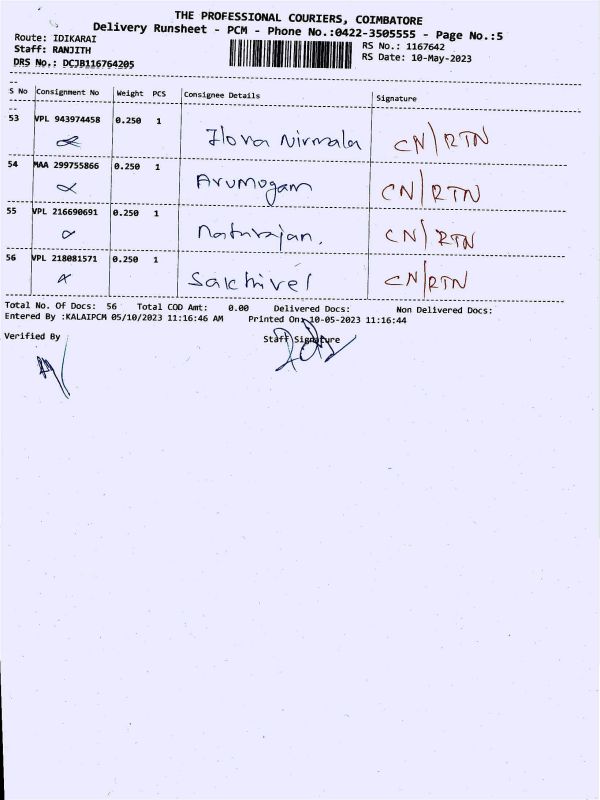 THE PROFESSIONAL COURIERS, COIMBATORE
Delivery Runsheet - PCM - Phone No.:0422-3505555 - Page No.:5
Route: IDIKARAI
Staff: RANJITH
RS No.: 1167642
DRS No.: DCJB116764205
RS Date: 10-May-2023
S No Consignment No Weight PCS Consignee Details Signature
53 VPL 943974458 0.250 1 Nirmala CN/RTN
54 MAA 299755866 0.250 1 Arumogam CN/RTN
55 VPL 216690691 0.250 1 Natarajan. CN/RTN
56 VPL 218081571 0.250 1 Sakthivel CN/RTN
Total No. Of Docs: 56 Total COD Amt: 0.00 Delivered Docs: Non Delivered Docs:
Entered By :KALAIPCM 05/10/2023 11:16:46 AM Printed On: 10-05-2023 11:16:44
Verified By Staff Signature